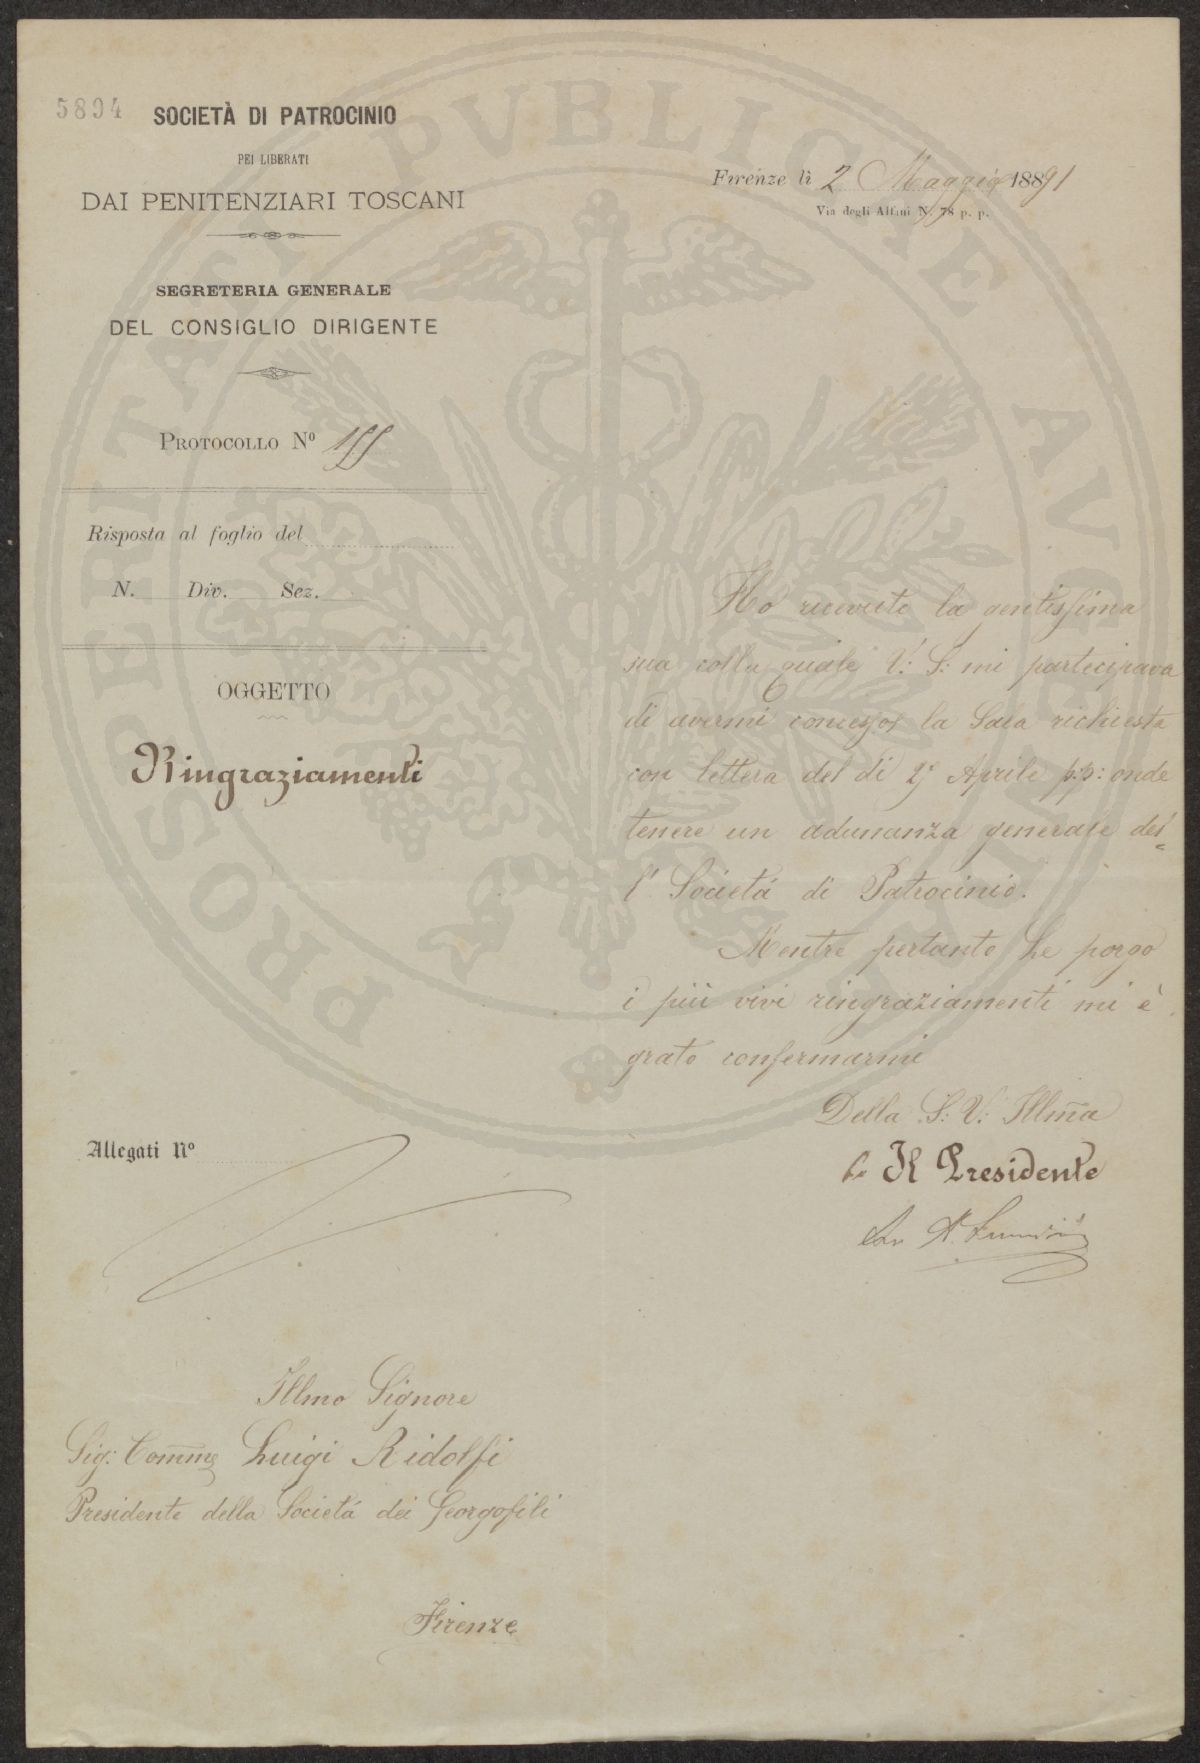 5894
SOCIETÀ DI PATROCINIO
PEI LIBERATI
DAI PENITENZIARI TOSCANI
SEGRETERIA GENERALE
DEL CONSIGLIO DIRIGENTE
PROTOCOLLO Nº 155
Risposta al foglio del
N. Div. Sez.
OGGETTO
Ringraziamenti
Firenze li 2 Maggio 18891
Via degli Alfani N. 78 p. p.
Ho ricevuto la gentissima
sua colla quale V: S: mi partecipava
di avermi concesso la Sala richiesta
con lettera del di Aprile p:p: onde
tenere un adunanza generale del=
l' Società di Patrocinio.
Mentre pertanto Le porgo
i più vivi ringraziamenti mi è
grato confermarmi
Della S: V: Illma
Il Presidente
Allegati Nº
Illmo Signore
Sig: Comme Luigi Ridolfi
Presidente della Società dei Georgofili
Firenze
PROSPERITATI PVBLICAE AVGENDAE